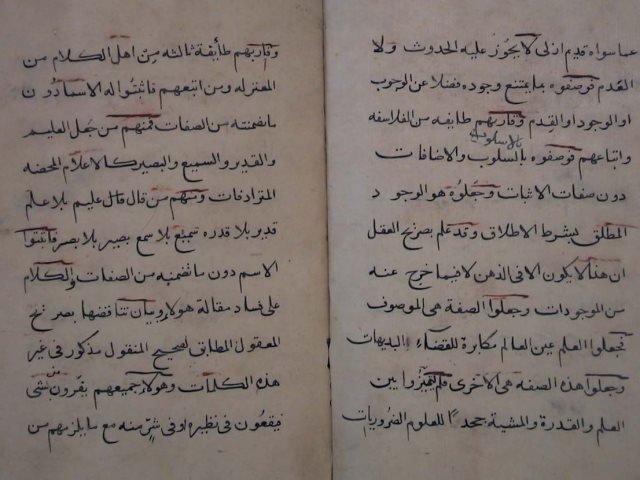 عما سواه قديم ازلى لا يجوز عليه الحدوث ولا
العدم فوصفوه بما يمتنع وجوده فضلا عن الوجوب
او الوجود او القدم وقاربهم طايفه من الفلاسفه
بالسلوب
واتباعهم فوصفوه بالسلوب والاضافات
دون صفات الاثبات وجعلوه هو الوجود
المطلق بشرط الاطلاق وقد علم بصريح العقل
ان هذا لا يكون الا فى الذهن لا فيما خرج عنه
من الموجودات وجعلوا الصفة هى الموصوف
فجعلوا العلم عين العالم مكابرة للقضاء البديهات
وجعلوا هذه الصفه هى الاخرى فلم يميزوا بين
العلم والقدرة والمشية جحدًا للعلوم الضروريات
وقاربهم طايفة ثالثه من اهل الكلام من
المعتزله ومن اتبعهم فاثبتوا له الاسما دون
ما تضمنته من الصفات فمنهم من جعل العليم
والقدير والسميع والبصير كالاعلام المحضه
المترادفات ومنهم من قال قال عليم بلا علم
قدير بلا قدره سميع بلا سمع بصير بلا بصر فاثبتوا
الاسم دون ما تضمنه من الصفات والكلام
على فساد مقالة هولاء وبيان تناقضها بصريح
المعقول المطابق لصحيح المنقول مذكور فى غير
هذه الكلمات وهولاء جميعهم يفرون من شى
فيقعون فى نظيره او فى شر منه مع ما يلزمهم من